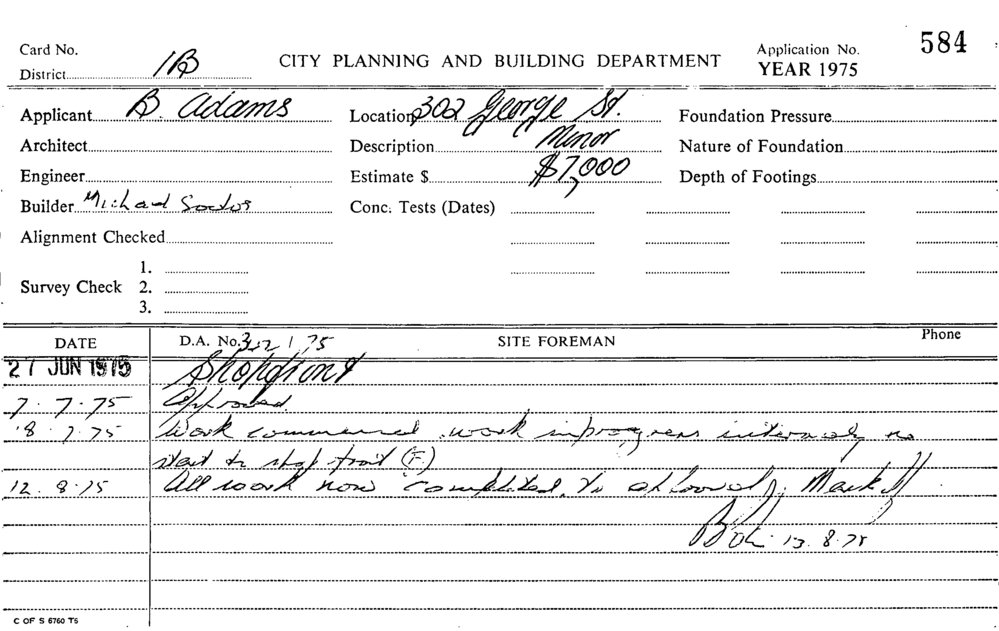 Card No.
District 1B
CITY PLANNING AND BUILDING DEPARTMENT
Application No. 584
YEAR 1975
Applicant B. Adams
Location 302 George St.
Foundation Pressure
Architect
Description Minor
Nature of Foundation
Engineer
Estimate $ $7,000
Depth of Footings
Builder Michael
Conc. Tests (Dates)
Alignment Checked
Survey Check
1.
2.
3.
DATE
D.A. No. 75
SITE FOREMAN
Phone
27 JUN 1975
Shopfront
7.7.75 Approved
8.7.75 Work commenced. work in progress internaly no
start to shop front (F)
12.8.75 All work now completed. to Mark
13.8.75
C OF S 6760 TS